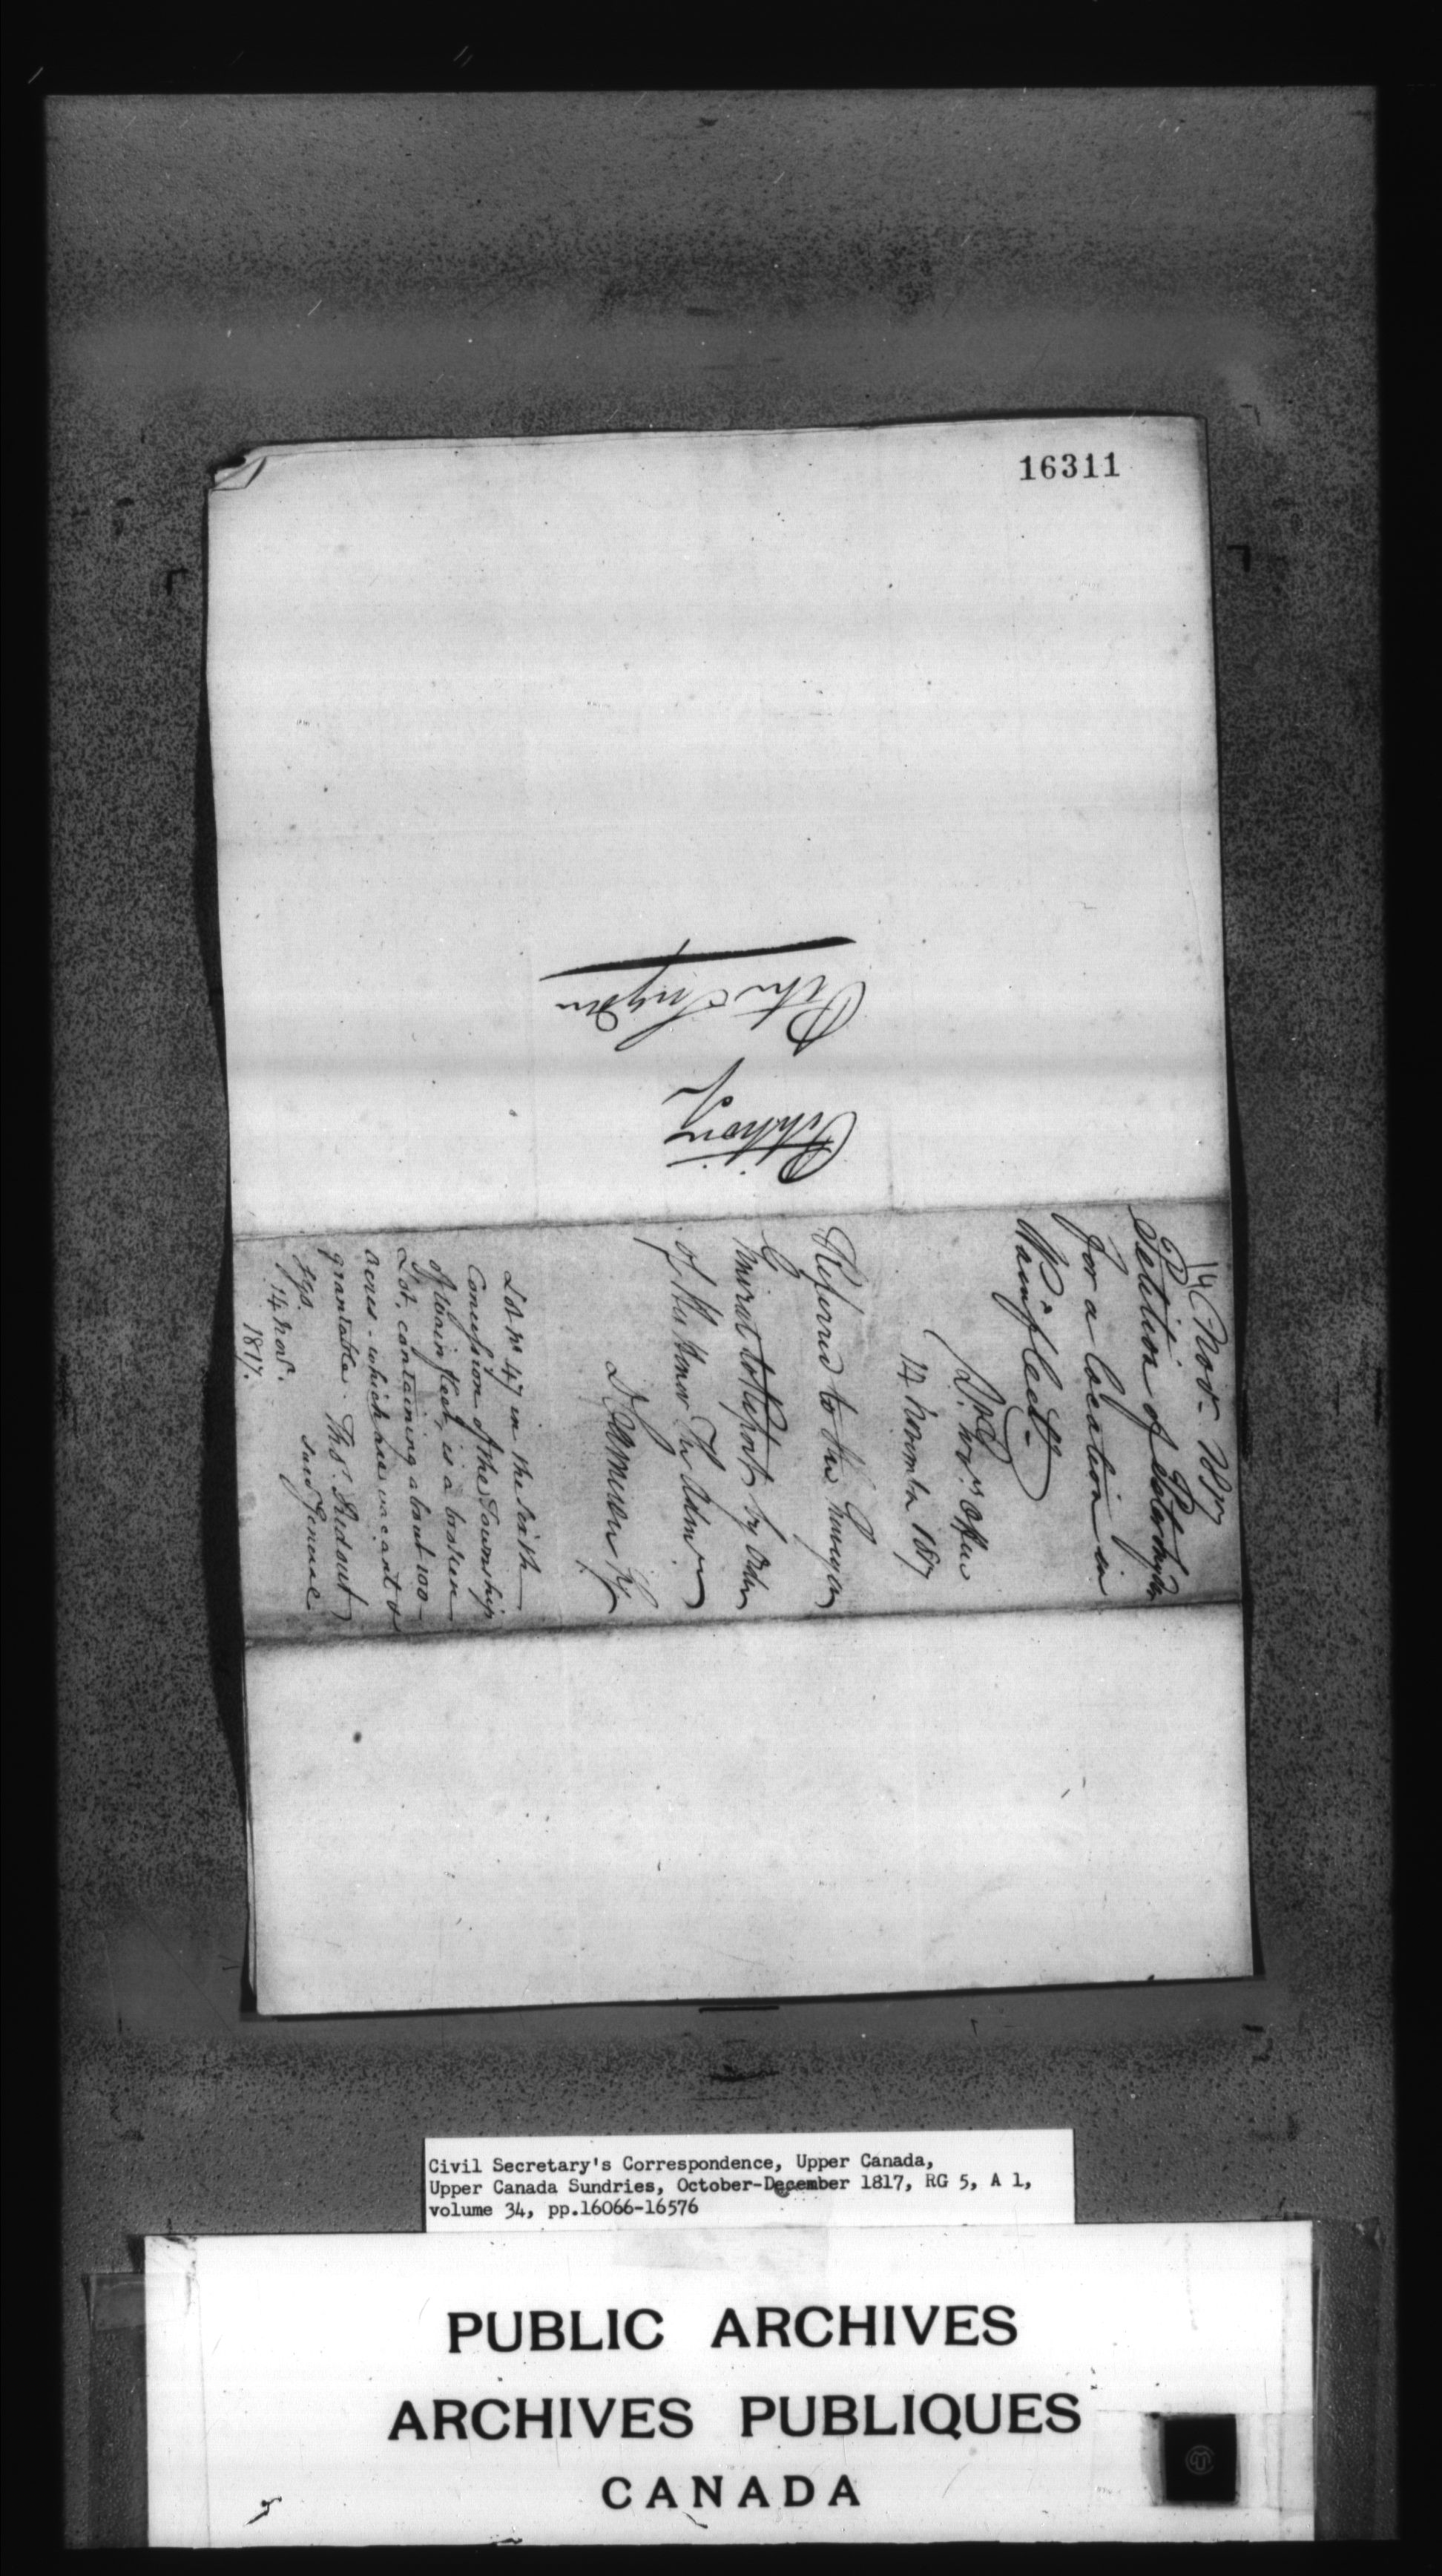 16311
Petition
of
Peter Snyder
14 Nov. 1817
Petition of Peter Snyder
for a location in
Wainfleet.
Lt. Govr.'s Office
14 November 1817
Referred to the Surveyor
General to Report by Order
of His Honor The Admr
D Cameron
Lot No 47 in the sixth
Concession of the Township
of Wainfleet, is a broken
Lot, containing about 100
acres - which are vacant &
grantable. Thos. Ridout
Surv General
14 Novr.
1817.
Civil Secretary's Correspondence, Upper Canada,
Upper Canada Sundries, October-December 1817, RG 5, A 1,
volume 34, pp.16066-16576
PUBLIC ARCHIVES
ARCHIVES PUBLIQUES
CANADA